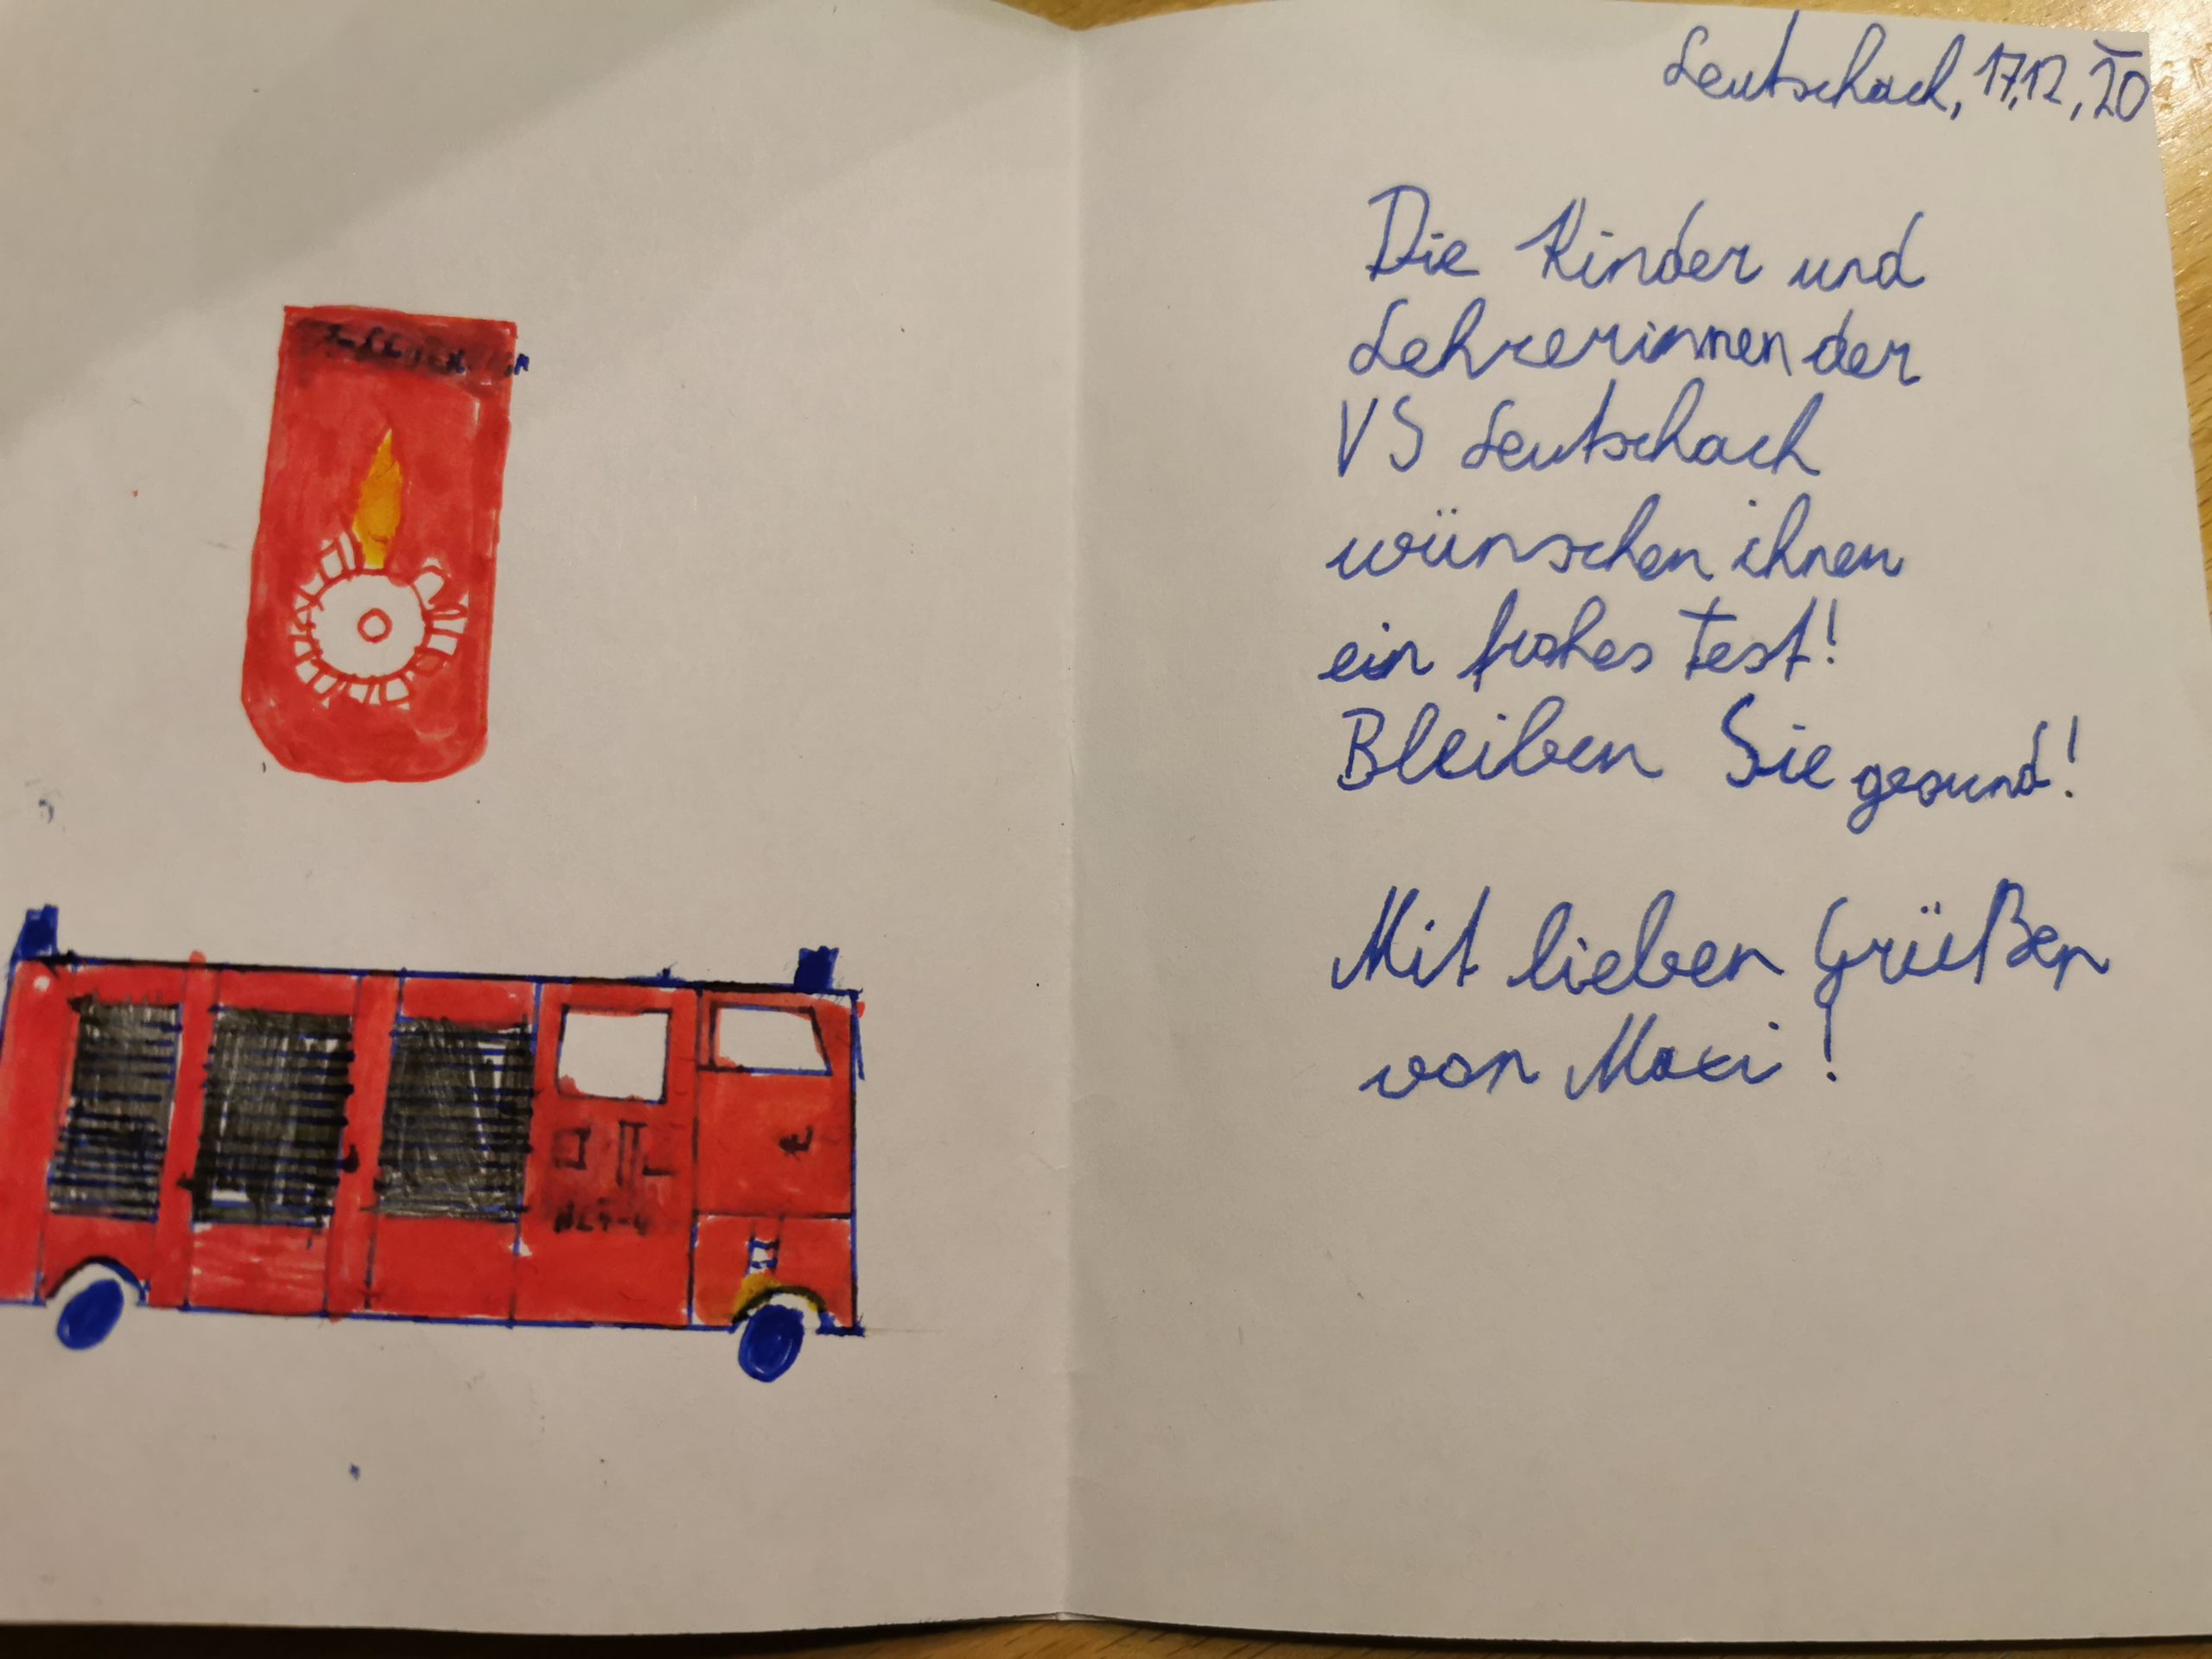 Leutschach, 17.12.20
Die Kinder und
Lehrerinnen der
VS Leutschach
wünschen ihnen
ein frohes Fest!
Bleiben Sie gesund!
Mit lieben Grüßen
von Maxi!